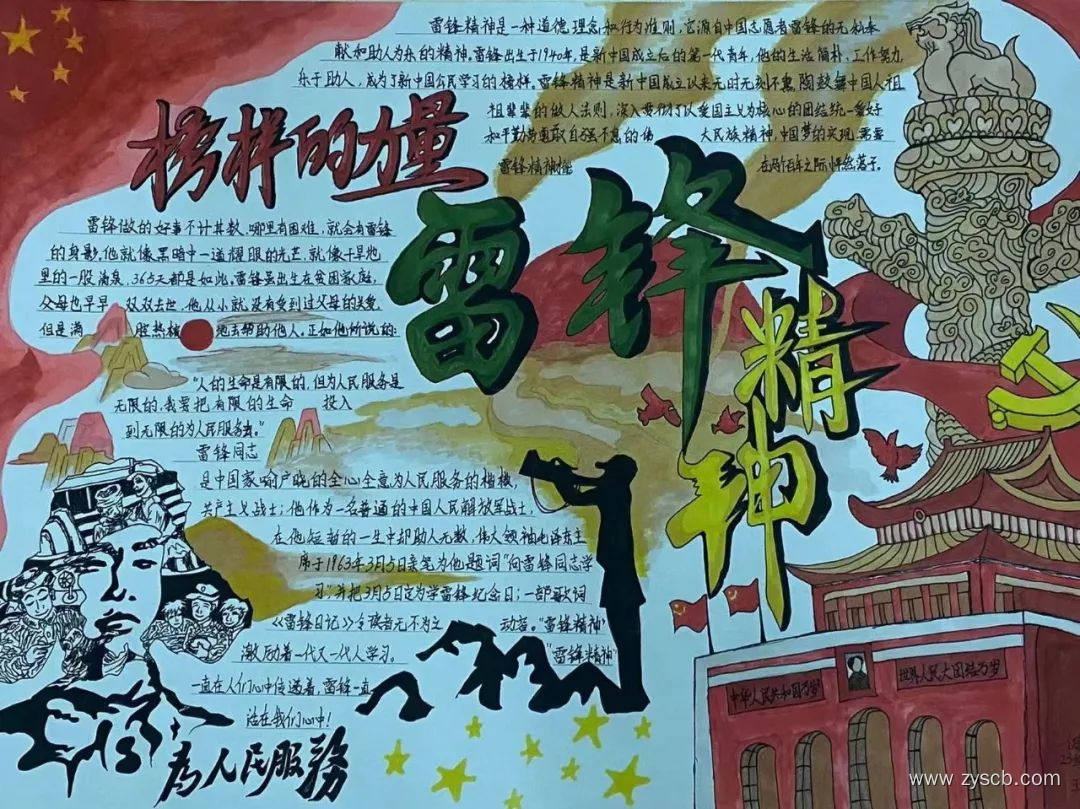 雷锋精神是一种道德理念和行为准则,它源自中国志愿者雷锋的无私奉
献和助人为乐的精神。雷锋出生于1940年,是新中国成立后的第一代青年,他的生活简朴,工作努力,
乐于助人,成为了新中国公民学习的榜样。雷锋精神是新中国成立以来无时无刻不熏陶鼓舞中国人祖
祖辈辈的做人法则,深入贯彻了以爱国主义为核心的团结统一爱好
和平勤劳勇敢自强不息的伟 大民族精神,中国梦的实现,需要
雷锋精神 在两个百年之际
榜样的力量
雷锋
精神
雷锋做的好事不计其数,哪里有困难,就会有雷锋
的身影,他就像黑暗中一道耀眼的光芒,就像干旱地
里的一股清泉,365天都是如此。雷锋虽出生在贫困家庭,
父母也早早 双双去世,他从小就没有受到过父母的关爱,
但是满 腔热 地去帮助他人。正如他所说的:
“人的生命是有限的,但为人民服务是
无限的,我要把有限的生命 投入
到无限的为人民服务去。”
雷锋同志
是中国家喻户晓的全心全意为人民服务的楷模,
共产主义战士;他作为一名普通的中国人民解放军战士,
在他短暂的一生中却助人无数,伟大领袖毛泽东主
席于1963年3月5日亲笔为他题词“向雷锋同志学
习”,并把3月5日定为学雷锋纪念日;一部歌词
《雷锋日记》令读者无不为之 动容。“雷锋精神”
激励着一代又一代人学习。 “雷锋精神”
一直在人们心中传递着,雷锋一直
活在我们心中!
为人民服務
中华人民共和国万岁
世界人民大团结万岁
www.zyscb.com